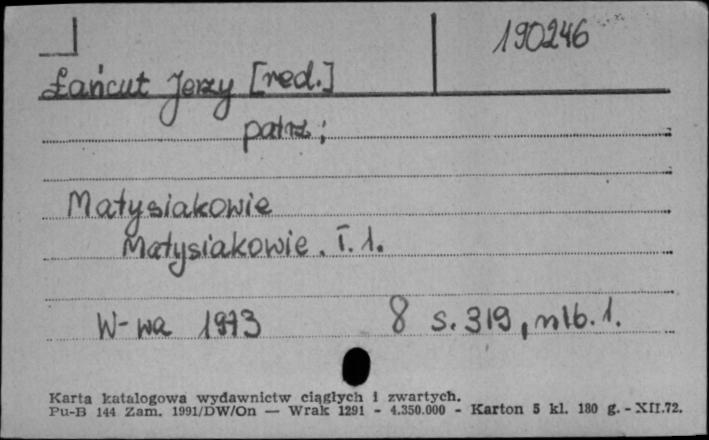 190246
Łańcut Jerzy [red.]
patrz:
Matysiakowie
Matysiakowie. T. 1.
W-wa 1973 8 s. 319, nlb. 1.
Karta katalogowa wydawnictw ciągłych i zwartych.
Pu-B 144 Zam. 1991/DW/On — Wrak 1291 - 4.350.000 - Karton 5 kl. 180 g. - XII.72.